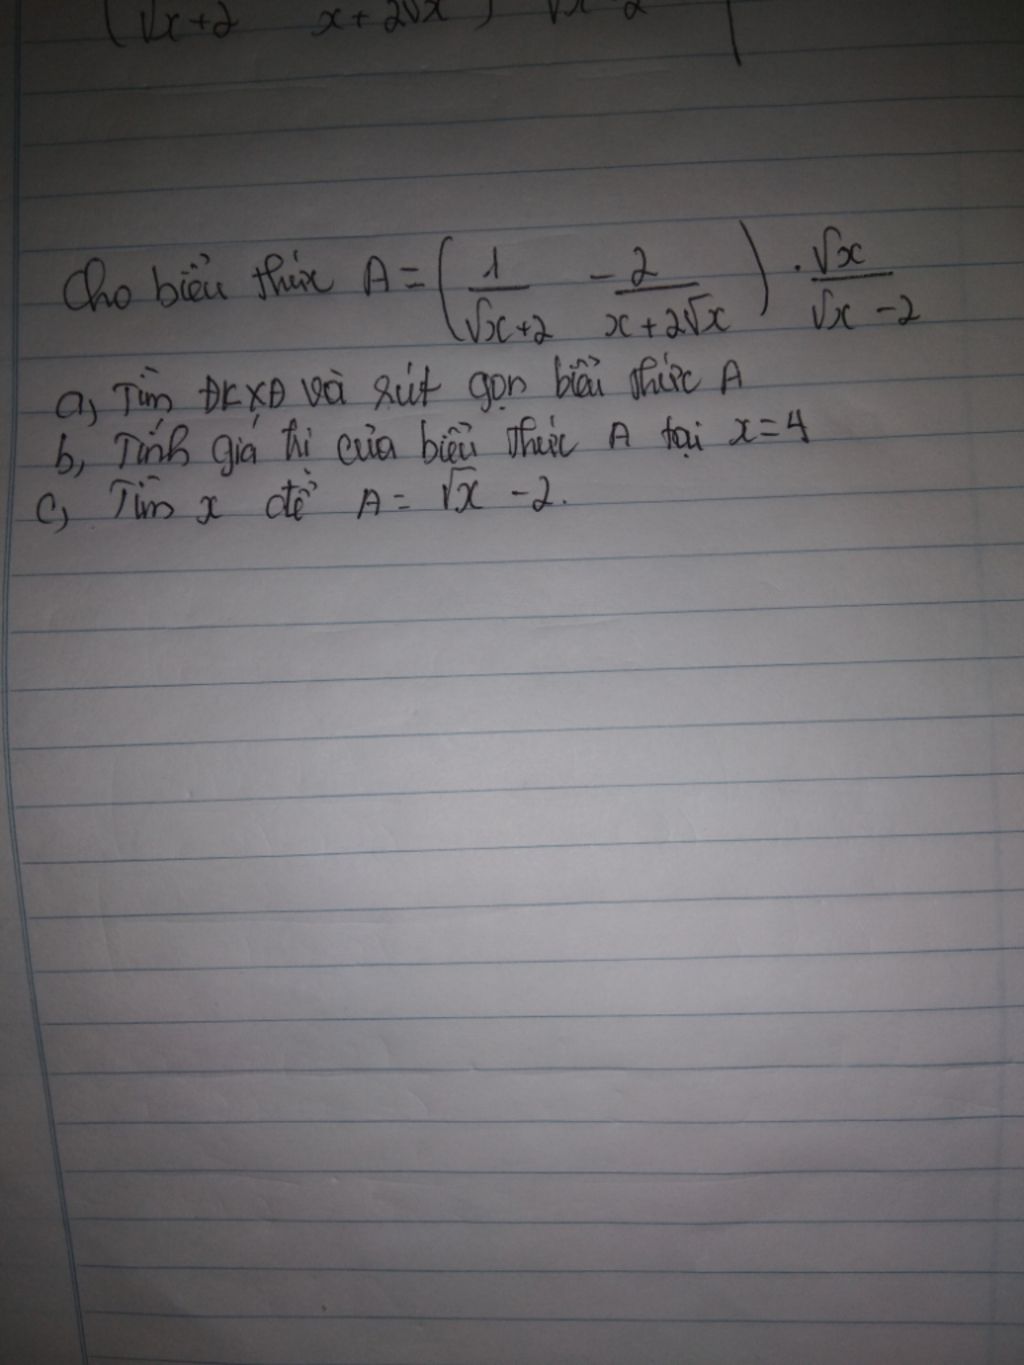 (√x+2 x+2√x) √x-2
Cho biểu thức A = (1/(√x+2) - 2/(x+2√x)) . √x/(√x-2)
a, Tìm ĐKXĐ và rút gọn biểu thức A
b, Tính giá trị của biểu thức A tại x=4
c, Tìm x để A = √x - 2.